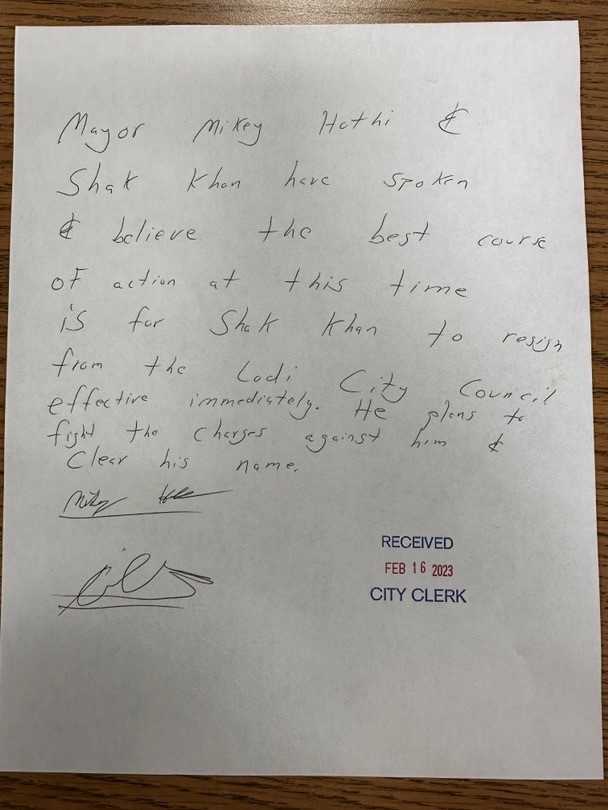 Mayor Mikey Hothi &
Shak Khan have spoken
& believe the best course
of action at this time
is for Shak Khan to resign
from the Lodi City Council
effective immediately. He plans to
fight the charges against him &
clear his name.
RECEIVED
FEB 16 2023
CITY CLERK